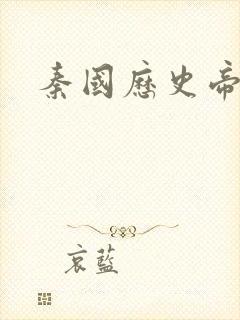 秦國歷史帝
哀藍